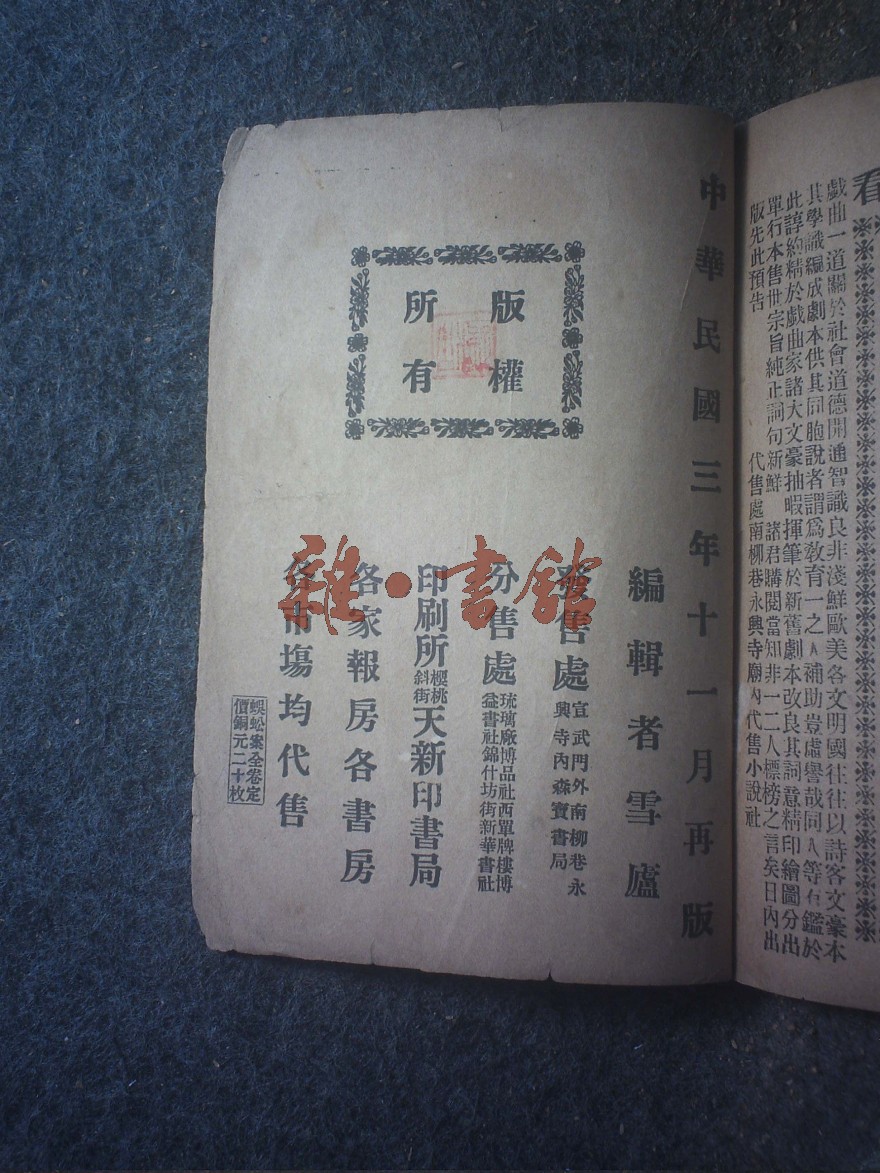 看
戲曲一道關於社會道德開通智識良非淺鮮歐美各文明國往往以詩客文豪本
其學識編成劇本供其同胞說者謂爲教育一之人補助豈虛譽哉同人等有鑑於
此諄約精於戲曲家諸大文豪抽暇揮筆於新舊劇本改良其詞意精印繪圖分出
單行本售世宗旨純正詞句新鮮 諸君購閱當知非一二人標榜之言矣日內出
版先此預告 代售處南柳巷永興寺廟內代售小說社
中華民國三年十一月再版
版權
所有
編輯者雪廬
發售處宣武門外南柳巷永
興寺內森寶書局
分售處琉璃廠博品社西單牌樓博
益書社錦什坊街新華書社
印刷所櫻桃
斜街天新印書局
各家報房各書房
各市塲均代售
蜈蚣案全卷定
價銅元二十枚
雜·書館